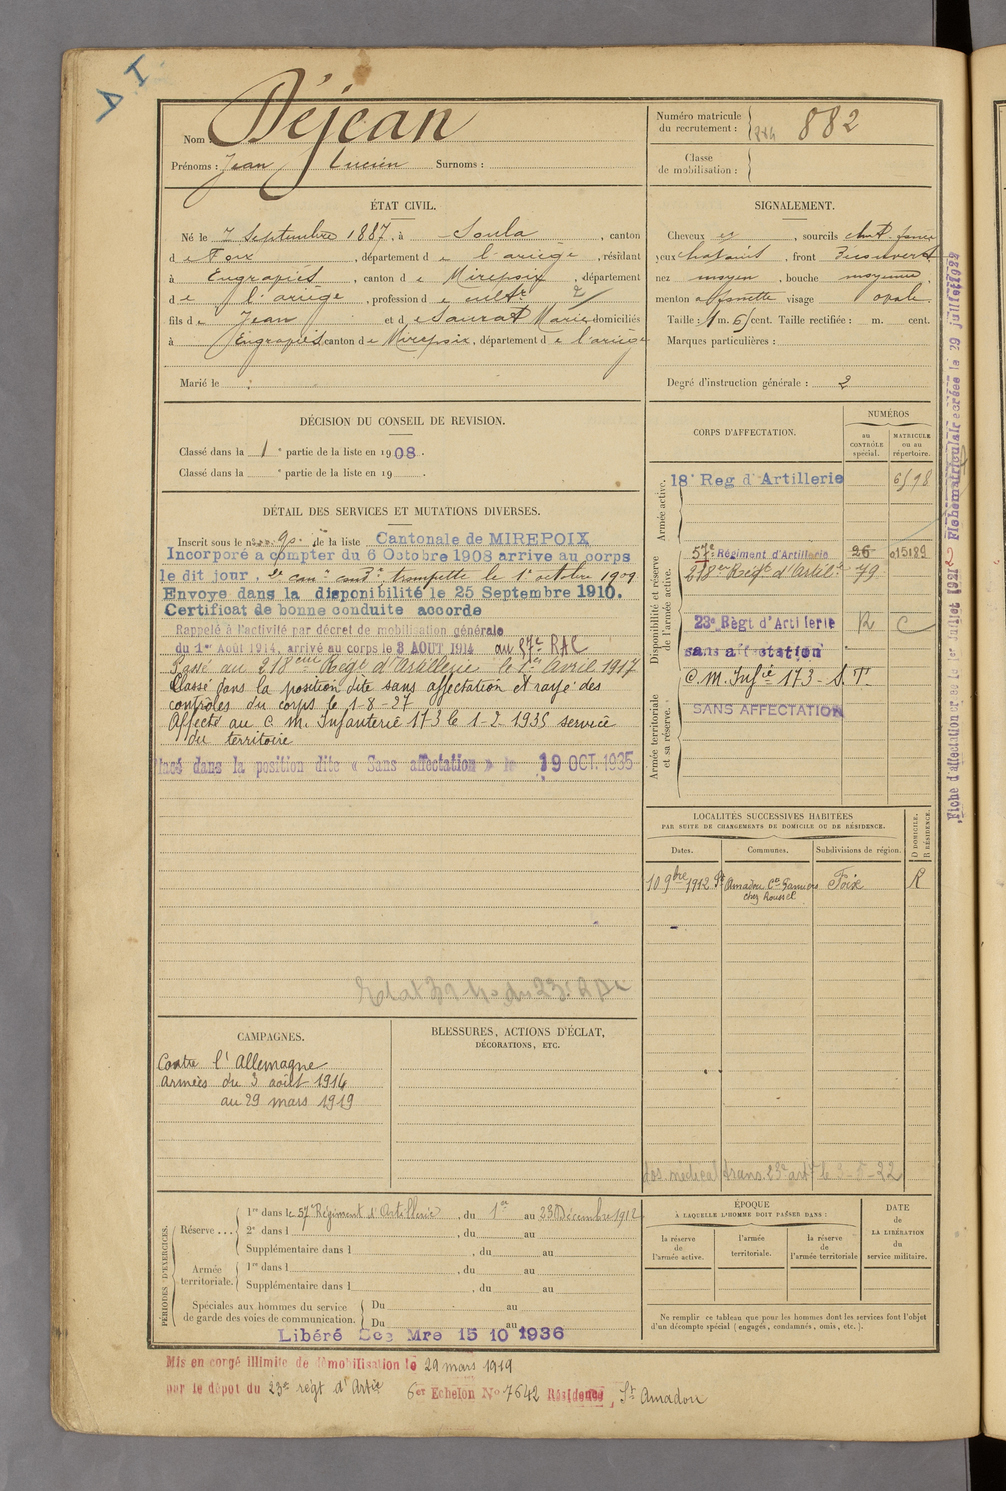 Nom Déjean
Prénoms : Jean Lucien Surnoms :
Numéro matricule du recrutement : 882
Classe de mobilisation :
ÉTAT CIVIL.
Né le 7 Septembre 1887, à Soula, canton
de Foix, département de l'ariège, résidant
à Engraviès, canton de Mirepoix, département
de l'ariège, profession de cultr
fils de Jean et de Saurat Marie domiciliés
à Engraviès canton de Mirepoix, département de l'ariège
Marié le
SIGNALEMENT.
Cheveux et, sourcils chat. foncé
yeux chatains, front
nez moyen, bouche moyenne
menton à fossette visage ovale.
Taille : 1 m. 65 cent. Taille rectifiée : m. cent.
Marques particulières :
Degré d'instruction générale : 2
DÉCISION DU CONSEIL DE REVISION.
Classé dans la 1e partie de la liste en 1908.
Classé dans la e partie de la liste en 19 .
DÉTAIL DES SERVICES ET MUTATIONS DIVERSES.
Inscrit sous le no 90 de la liste Cantonale de MIREPOIX
Incorporé a compter du 6 Octobre 1908 arrive au corps
le dit jour, 2e can. cond. trompette le 1e octobre 1909
Envoye dans la disponibilité le 25 Septembre 1910.
Certificat de bonne conduite accorde
Rappelé à l'activité par décret de mobilisation générale
du 1er Août 1914, arrivé au corps le 3 AOUT 1914 au 57e RAC
Passé au 218eme Regt d'Artillerie le 1er Avril 1917
Classé dans la position dite sans affectation et rayé des
contrôles du corps le 1-8-27
Affecté au C. M. Infanterie 173 le 1-2 1935 service
du territoire
lacé dans la position dite « Sans affectation » le 19 OCT. 1935
CORPS D'AFFECTATION.
NUMÉROS
au CONTRÔLE spécial.
MATRICULE ou au répertoire.
Armée active.
18e Reg d'Artillerie
Disponibilité et réserve de l'armée active.
57e Régiment d'Artillerie 26 015189
218e Regt d'Artil. 79
23e Règt d'Artillerie R C
sans affectation
Armée territoriale et sa réserve.
C. M. Infie 173 - S. T.
SANS AFFECTATION
LOCALITÉS SUCCESSIVES HABITÉES
PAR SUITE DE CHANGEMENTS DE DOMICILE OU DE RÉSIDENCE.
Dates. Communes. Subdivisions de région. D DOMICILE. R RÉSIDENCE.
10 9bre 1912 St Amadou Con Pamiers Foix R
chez Roussel
CAMPAGNES.
Contre l'Allemagne
Armées du 3 août 1914
au 29 mars 1919
BLESSURES, ACTIONS D'ÉCLAT,
DÉCORATIONS, ETC.
dos. médical trans. 23e artie le 3-5-22
PÉRIODES D'EXERCICES.
Réserve . . .
1re dans le 57e Régiment d'Artillerie, du 1er au 23 Décembre 1912
2e dans l , du au
Supplémentaire dans l , du au
Armée territoriale.
1re dans l , du au
Supplémentaire dans l , du au
Spéciales aux hommes du service de garde des voies de communication.
Du au
Du au
Libéré Sce Mre 15 10 1936
ÉPOQUE
À LAQUELLE L'HOMME DOIT PASSER DANS :
la réserve de l'armée active.
l'armée territoriale.
la réserve de l'armée territoriale
DATE de LA LIBÉRATION du service militaire.
Ne remplir ce tableau que pour les hommes dont les services font l'objet
d'un décompte spécial (engagés, condamnés, omis, etc.).
Mis en congé illimité de démobilisation le 29 mars 1919
par le dépot du 23e régt d'Artie 6er Echelon No 7642 Résidence, St Amadou